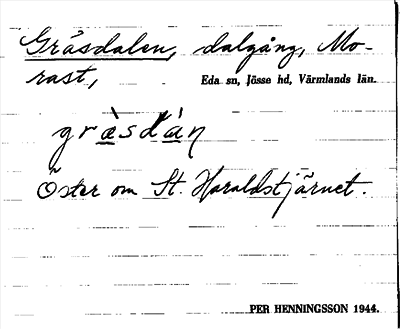 Gräsdalen, dalgång, Mo-
rast,
Eda sn, Jösse hd, Värmlands län.
græ̀sdá̀n
Öster om St. Haraldstjärnet.
PER HENNINGSSON 1944.